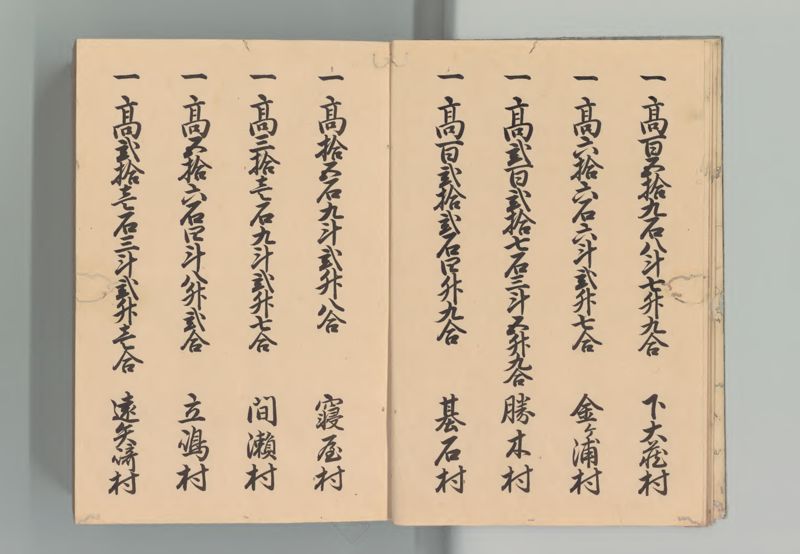 一高百五拾九石八斗七升九合 下大蔵村
一高六拾六石六斗弐升七合 金ヶ浦村
一高弐百弐拾七石三斗五升九合 勝木村
一高百弐拾弐石四升九合 碁石村
一高拾五石九斗弐升八合 寝屋村
一高三拾壱石九斗弐升七合 間瀬村
一高五拾六石四斗八升弐合 立嶋村
一高弐拾壱石三斗弐升壱合 遠矢崎村